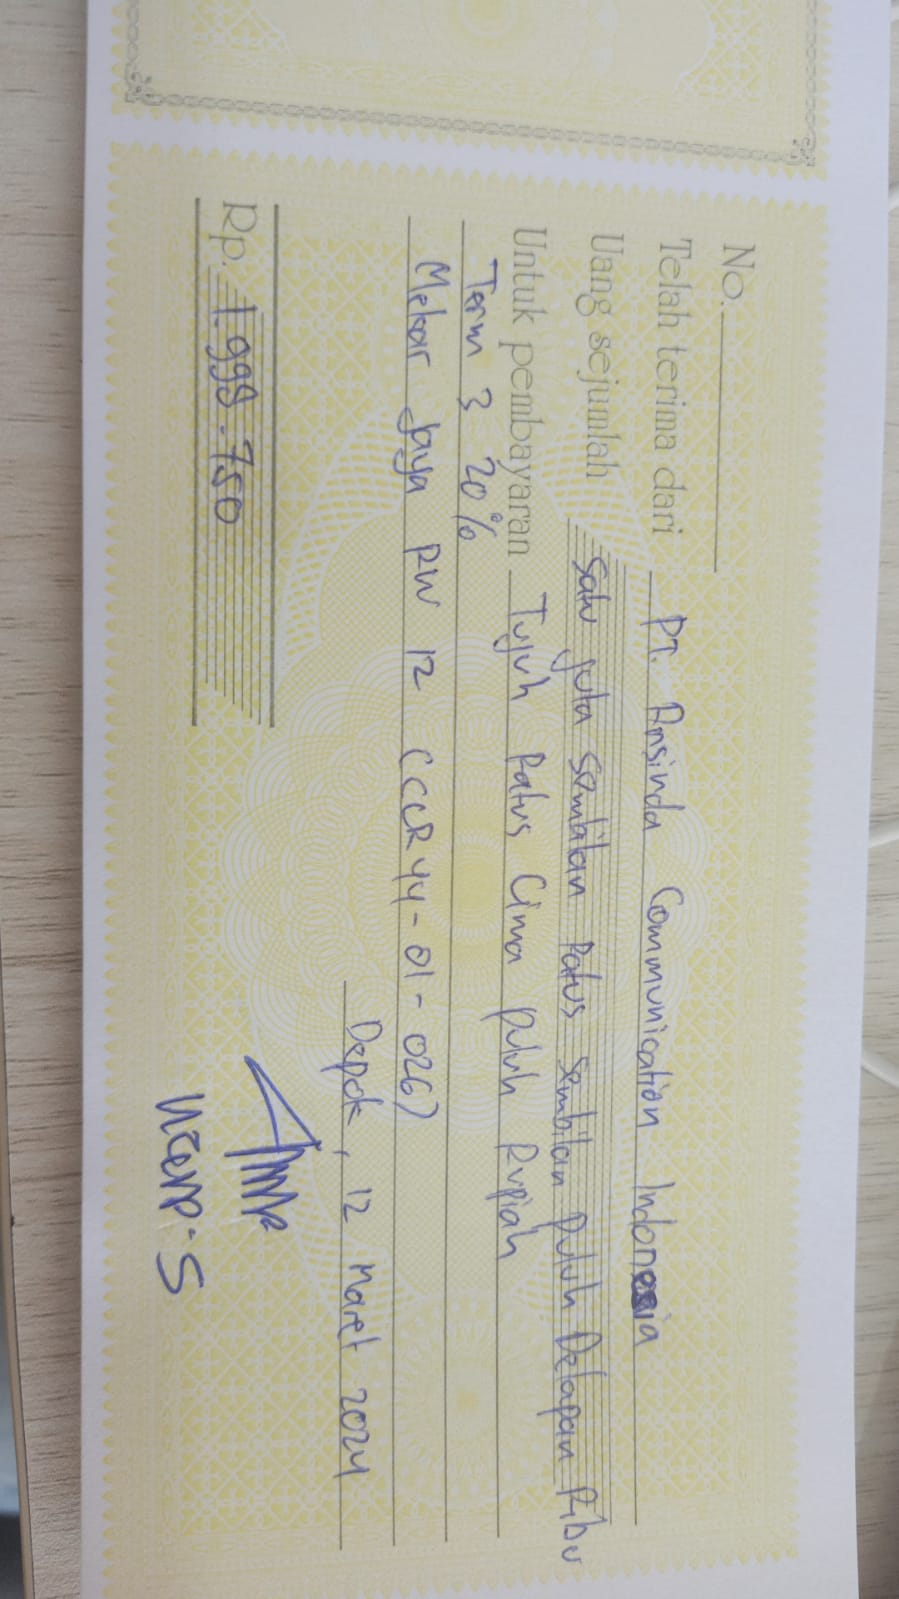 No.
Telah terima dari PT. Ansinda Communication Indonesia
Uang sejumlah Satu juta Sembilan Ratus Sembilan puluh Delapan Ribu
Untuk pembayaran Tujuh Ratus Lima puluh Rupiah
Term 3 20%
Mekar Jaya RW 12 (CCR44-01-026)
Depok, 12 Maret 2024
Rp. 1.998.750